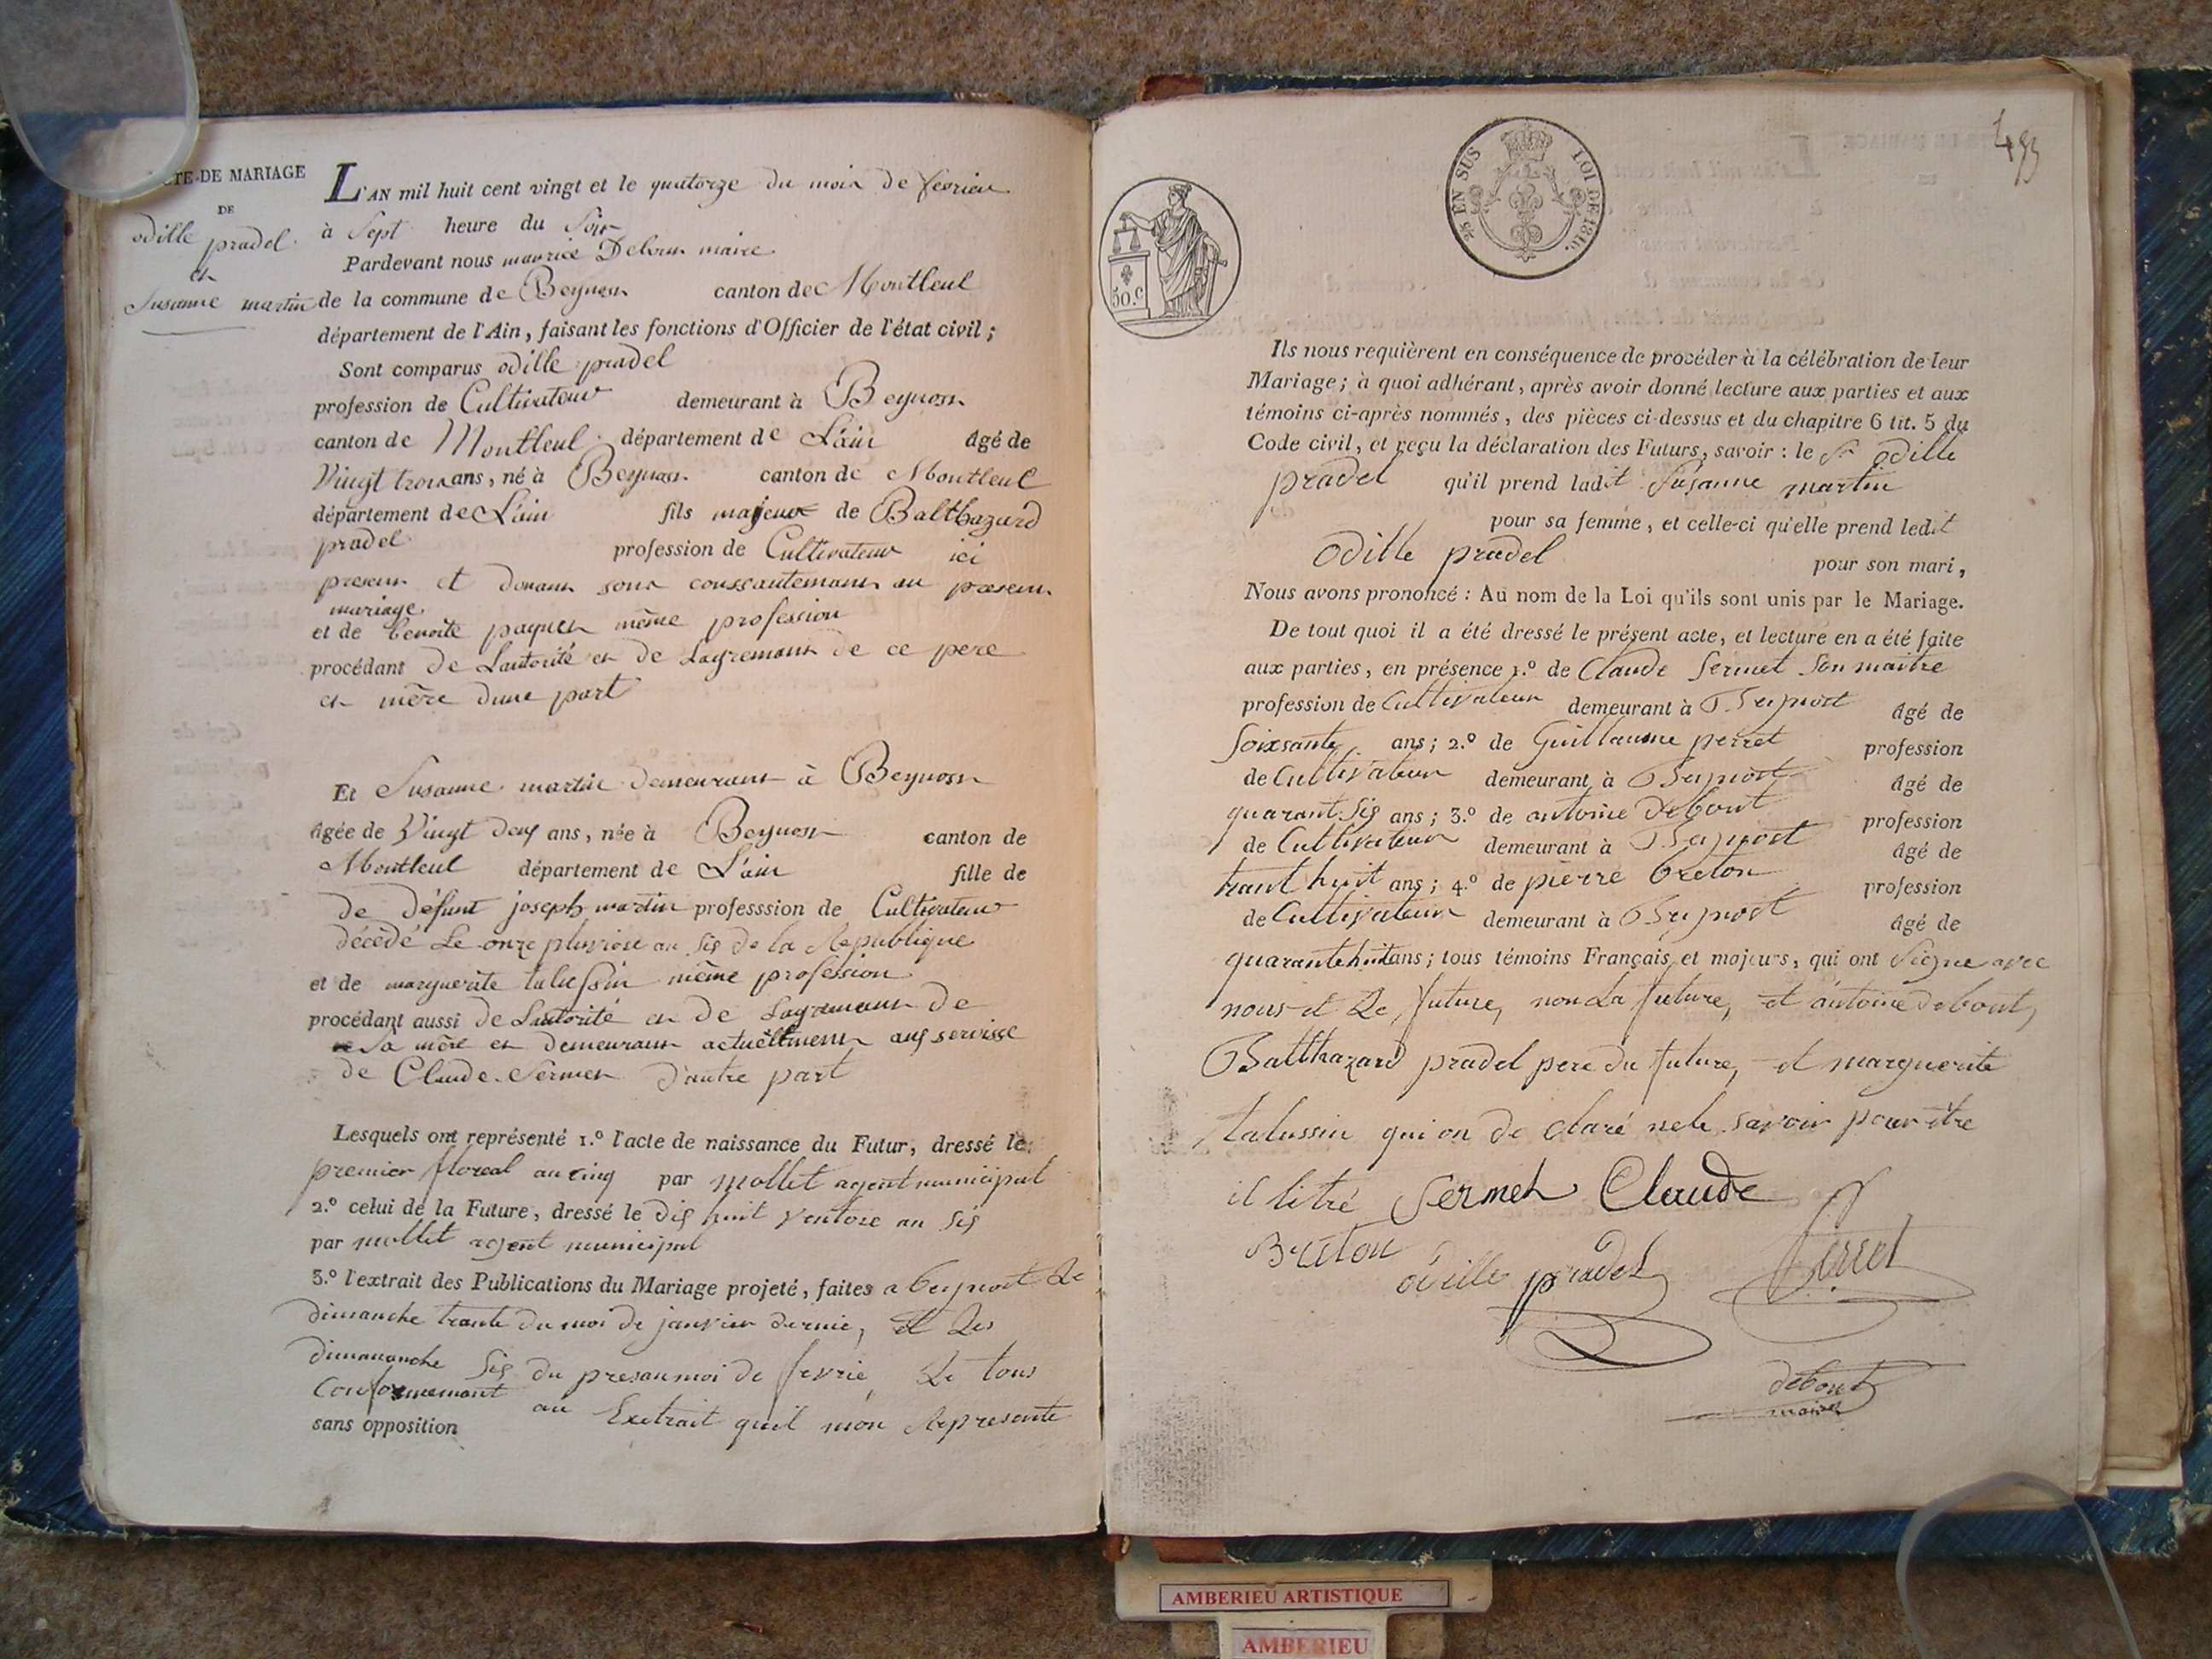 ACTE DE MARIAGE
DE
odille pradel
et
Susanne martin
L'AN mil huit cent vingt et le quatorze du mois de fevrier
à Sept heure du Soir
Pardevant nous maurice Debout maire
de la commune de Beynost canton de Montleul
département de l'Ain, faisant les fonctions d'Officier de l'état civil;
Sont comparus odille pradel
profession de Cultivateur demeurant à Beynost
canton de Montleul département de L'ain âgé de
Vingt trois ans, né à Beynost canton de Montleul
département de L'ain fils majeur de Balthazard
pradel profession de Cultivateur ici
present et donant sont conssantemant au present
mariage
et de benoite paquet même profession
procédant de Lautorité et de Lagremant de ce pere
et mère dune part
Et Susanne martin demeurant à Beynost
âgée de Vingt deux ans, née à Beynost canton de
Montleul département de L'ain fille de
de défunt joseph martin professsion de Cultivateur
décédé Le onze pluviose an Sis de la Republique
et de marguerite talussin même profession
procédant aussi de Lautorité et de Lagremant de
Sa mère et demeurant actuellment aux servisse
de Claude Sermet d'autre part
Lesquels ont représenté 1.º l'acte de naissance du Futur, dressé le
premier floreal an cinq par mollet agent municipal
2.º celui de la Future, dressé le dix huit ventose an Sis
par mollet agent municipal
3.º l'extrait des Publications du Mariage projeté, faites a beynost Le
dimanche trante du moi de janvier dernie, et Les
dimananche Sis du presan moi de fevrié, Le tous
Conformemant au Extrait quil mon Represente
sans opposition
493
EN SUS LOI DE 1816.
50.c
Ils nous requièrent en conséquence de procéder à la célébration de leur
Mariage; à quoi adhérant, après avoir donné lecture aux parties et aux
témoins ci-après nommés, des pièces ci-dessus et du chapitre 6 tit. 5 du
Code civil, et reçu la déclaration des Futurs, savoir : le Sr odille
pradel qu'il prend ladit Susanne martin
pour sa femme, et celle-ci qu'elle prend ledit
odille pradel pour son mari,
Nous avons prononcé : Au nom de la Loi qu'ils sont unis par le Mariage.
De tout quoi il a été dressé le présent acte, et lecture en a été faite
aux parties, en présence 1.º de Claude Sermet Son maitre
profession de Cultivateur demeurant à Beynost âgé de
Soixsante ans; 2.º de Guillaume perret profession
de Cultivateur demeurant à Beynost âgé de
quarant Sis ans; 3.º de antoine debout profession
de Cultivateur demeurant à Beynost âgé de
trant huit ans; 4.º de pierre breton profession
de Cultivateur demeurant à Beynost âgé de
quarante huit ans; tous témoins Français et majeurs, qui ont Signe avec
nous et Le future, non La future, et antoine debout,
Balthazard pradel pere du future, et marguerite
talussin qui on de claré nele savoir pour être
il litré Sermet Claude
Breton odille pradel Perret
debout
maire
AMBERIEU ARTISTIQUE
AMBERIEU